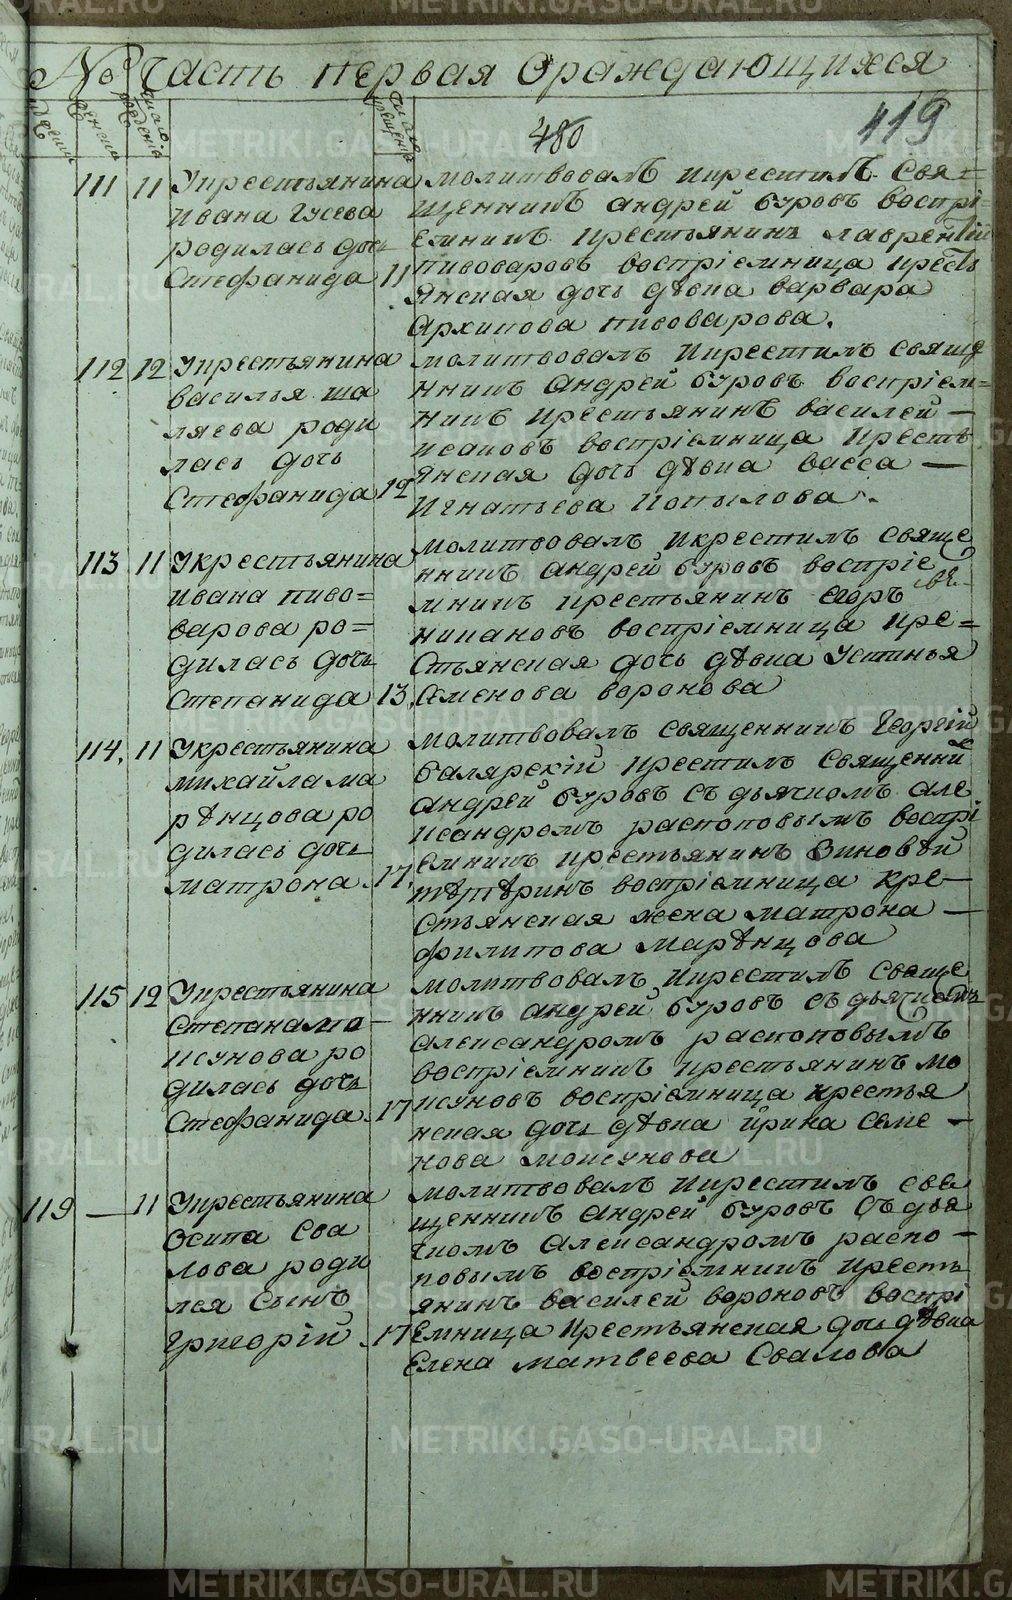 № Часть первая Ораждающихся
число рожденія
число крещенія
480
419
111 11 Укрестьянина
Ивана Гусева
родилась дочь
Стефанида 11
молитвовалъ икрестилъ Свя=
щенникъ андрей буровъ воспрі=
емникъ крестьянинъ лаврентій
пивоваровъ воспріемница кресть
янская дочь дѣвка варвара
Архипова пивоварова.
112 12 Укрестьянина
василья ша
ляева роди
лась дочь
Стефанида 12
молитвовалъ Икрестилъ свяще
нникъ Андрей буровъ воспріем=
никъ крестьянинъ василей —
исаковъ воспріемница кресть
янская дочь дѣвка васса —
Игнатьева Копылова.
113 11 Укрестьянина
ивана пиво=
варова ро=
дилась дочь
Степанида 13.
молитвовалъ Икрестилъ свяще
нникъ андрей буровъ воспріе
мникъ крестьянинъ егоръ
никановъ воспріемница кре=
стьянская дочь дѣвка Устинья
Семенова воронова
114. 11 Укрестьянина
михайла ма
рѣнцова ро
дилась дочь
матрона 17.
молитвовалъ священникъ Георгій
балярскій крестилъ священни
андрей буровъ съ дьячкомъ але
ксандромъ распоповымъ воспрі
емникъ крестьянинъ Зиновѣй
тѣтѣринъ воспріемница кре—
стьянская жена матрона —
филипова Марѣнцова
115 12 Укрестьянина
Степана мо—
ксунова ро
дилась дочь
Стефанида 17
молитвовалъ Икрестилъ свяще
нникъ андрей буровъ съ дьячкомъ
Александромъ распоповымъ
воспріемникъ крестьянинъ мо
ксуновъ воспріемница крестья
нская дочь дѣвка ирина семе —
нова моксунова
119 — 11 Укрестьянина
осипа Сва
лова роди
лся Сынъ
григорій 17
молитвовалъ Икрестилъ свя
щенникъ андрей буровъ съ дья
чкомъ Александромъ распо —
повымъ воспріемникъ кресть
янинъ василей вороновъ воспрі
емница крестьянская дочь дѣвка
Елена матвеева Свалова
METRIKI.GASO-URAL.RU